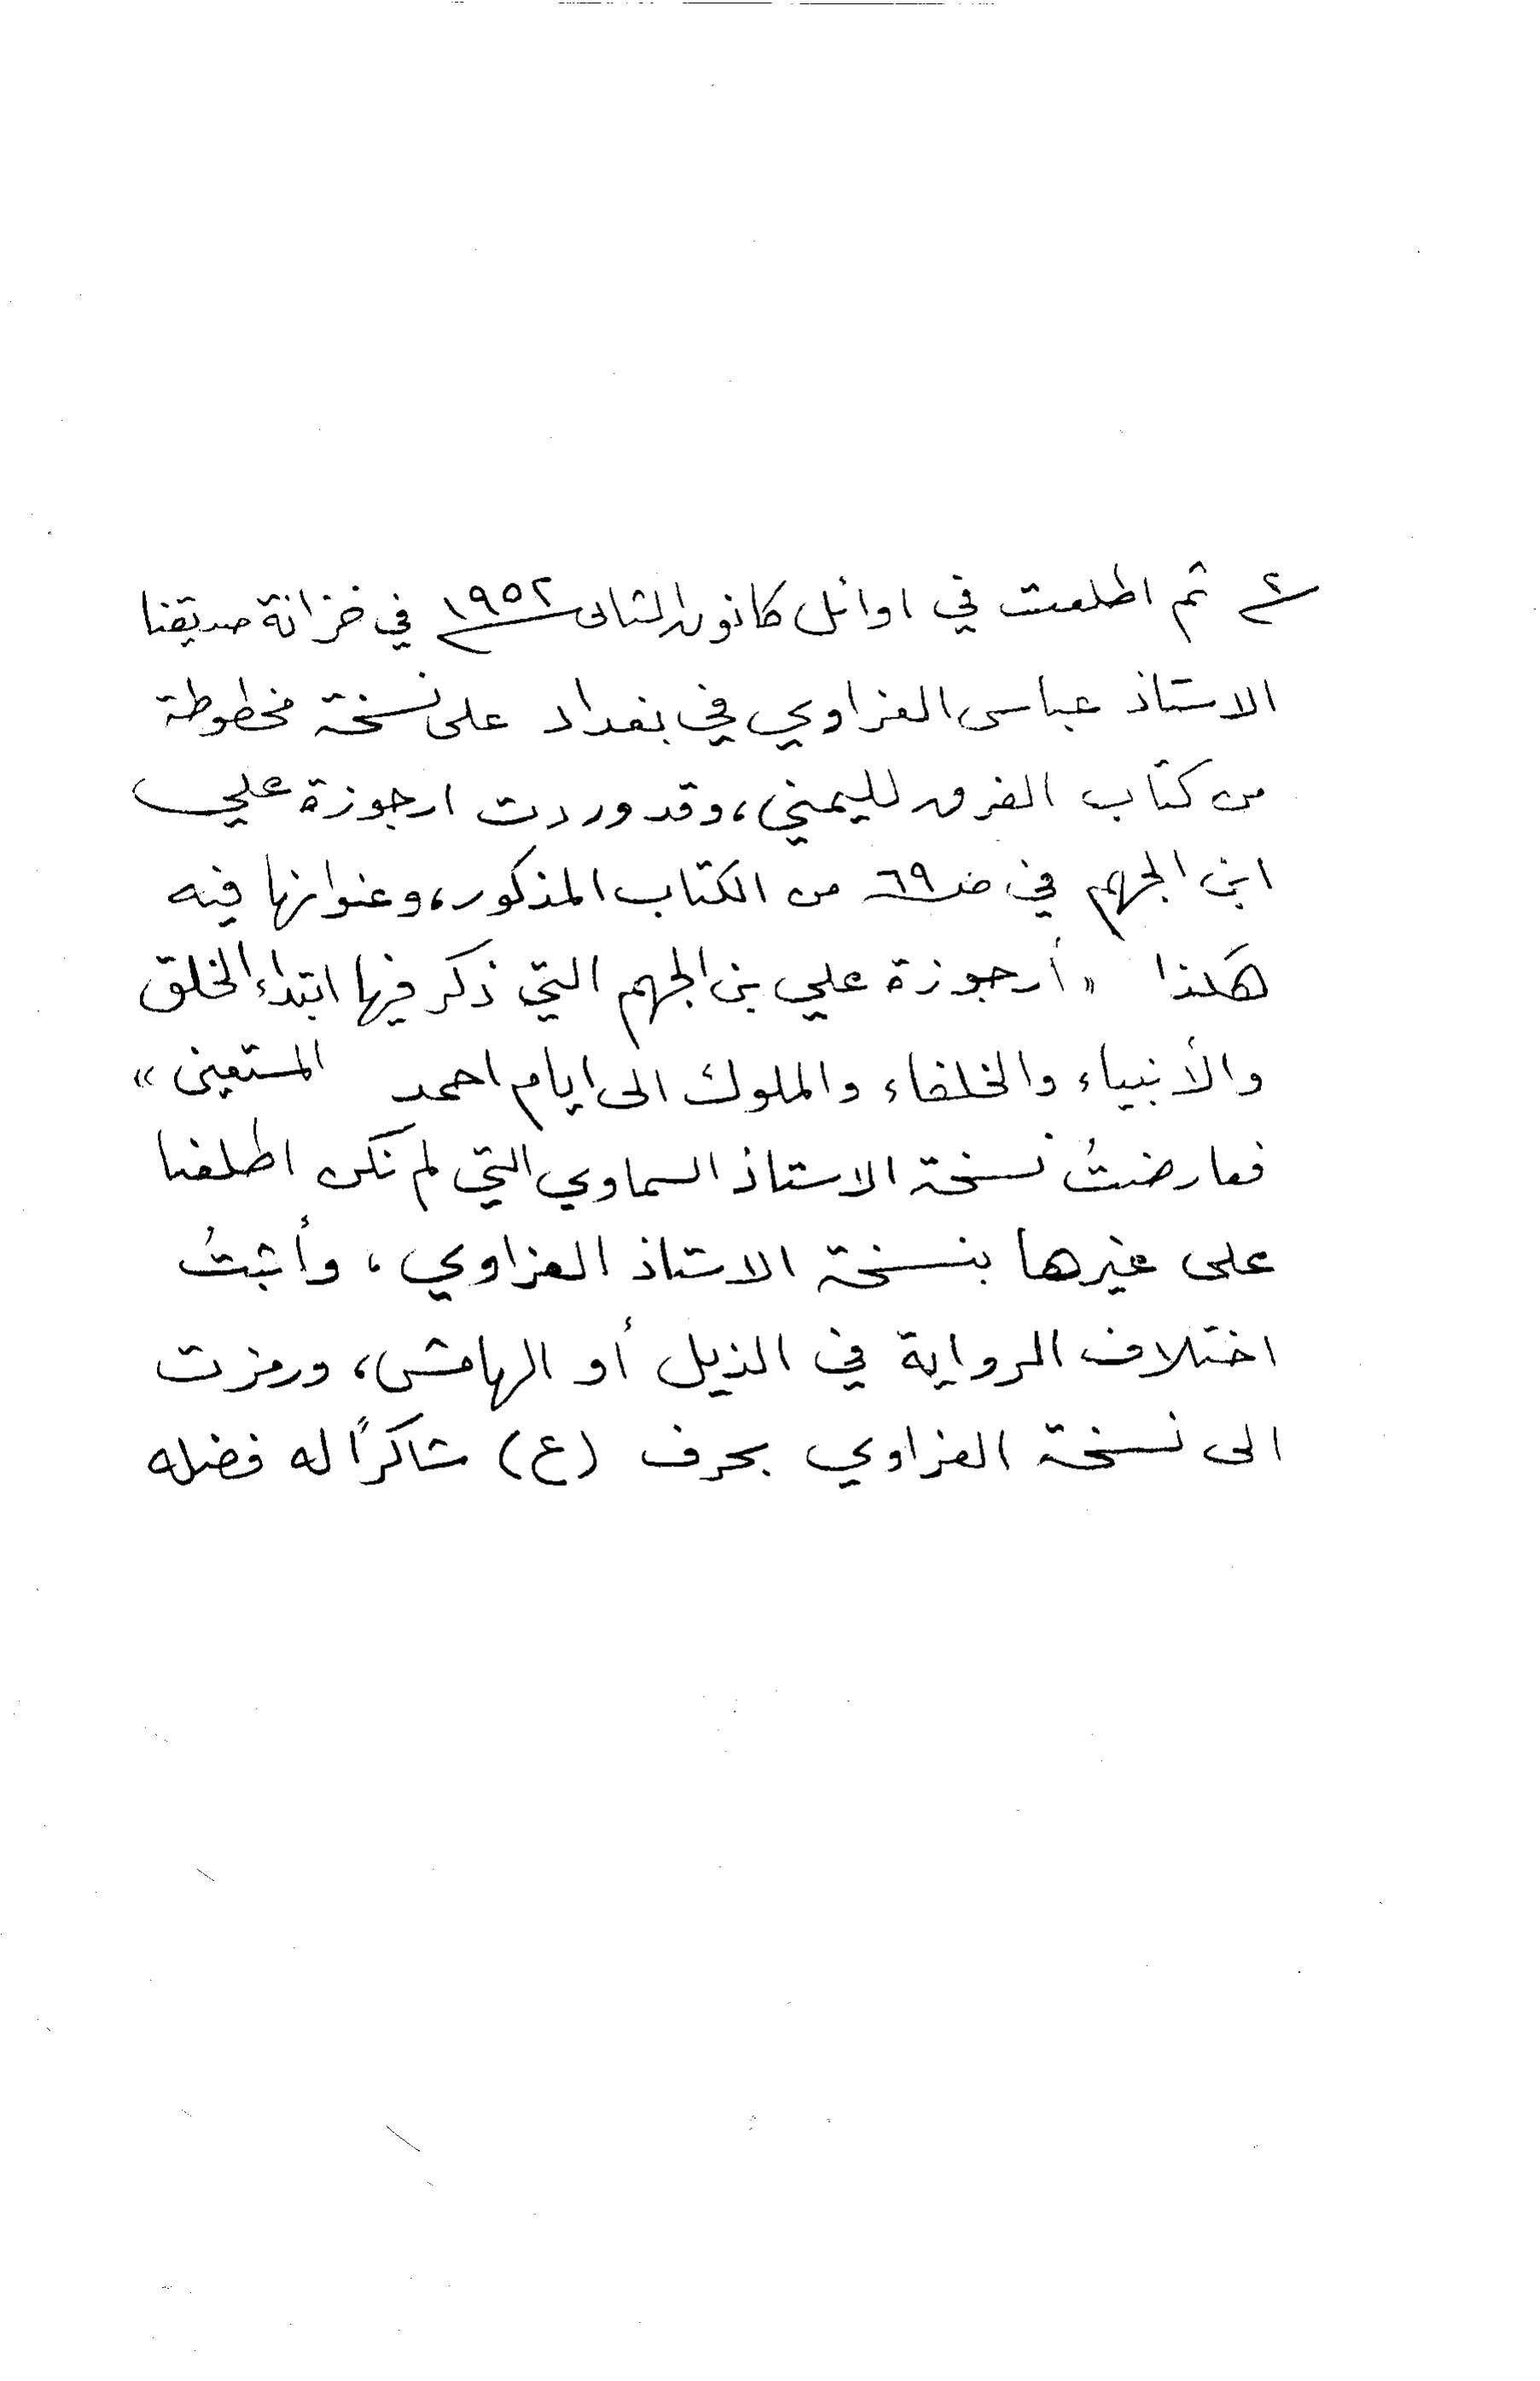 ثم اطلعت في اوائل كانون الثاني ١٩٥٢ في خزانة صديقنا
الاستاذ عباس العزاوي في بغداد على نسخة مخطوطة
من كتاب الفرق لليمني، وقد وردت ارجوزة علي
ابن الجهم في صـ ٦٩ من الكتاب المذكور، وعنوانها فيه
هكذا «أرجوزة علي بن الجهم التي ذكر فيها ابتداء الخلق
والأنبياء والخلفاء والملوك الى ايام احمد المستعين»
فعارضتُ نسخة الاستاذ السماوي التي لم نكن اطلعنا
على غيرها بنسخة الاستاذ العزاوي، وأثبتُ
اختلاف الرواية في الذيل أو الهامش، ورمزت
الى نسخة العزاوي بحرف (ع) شاكراً له فضله